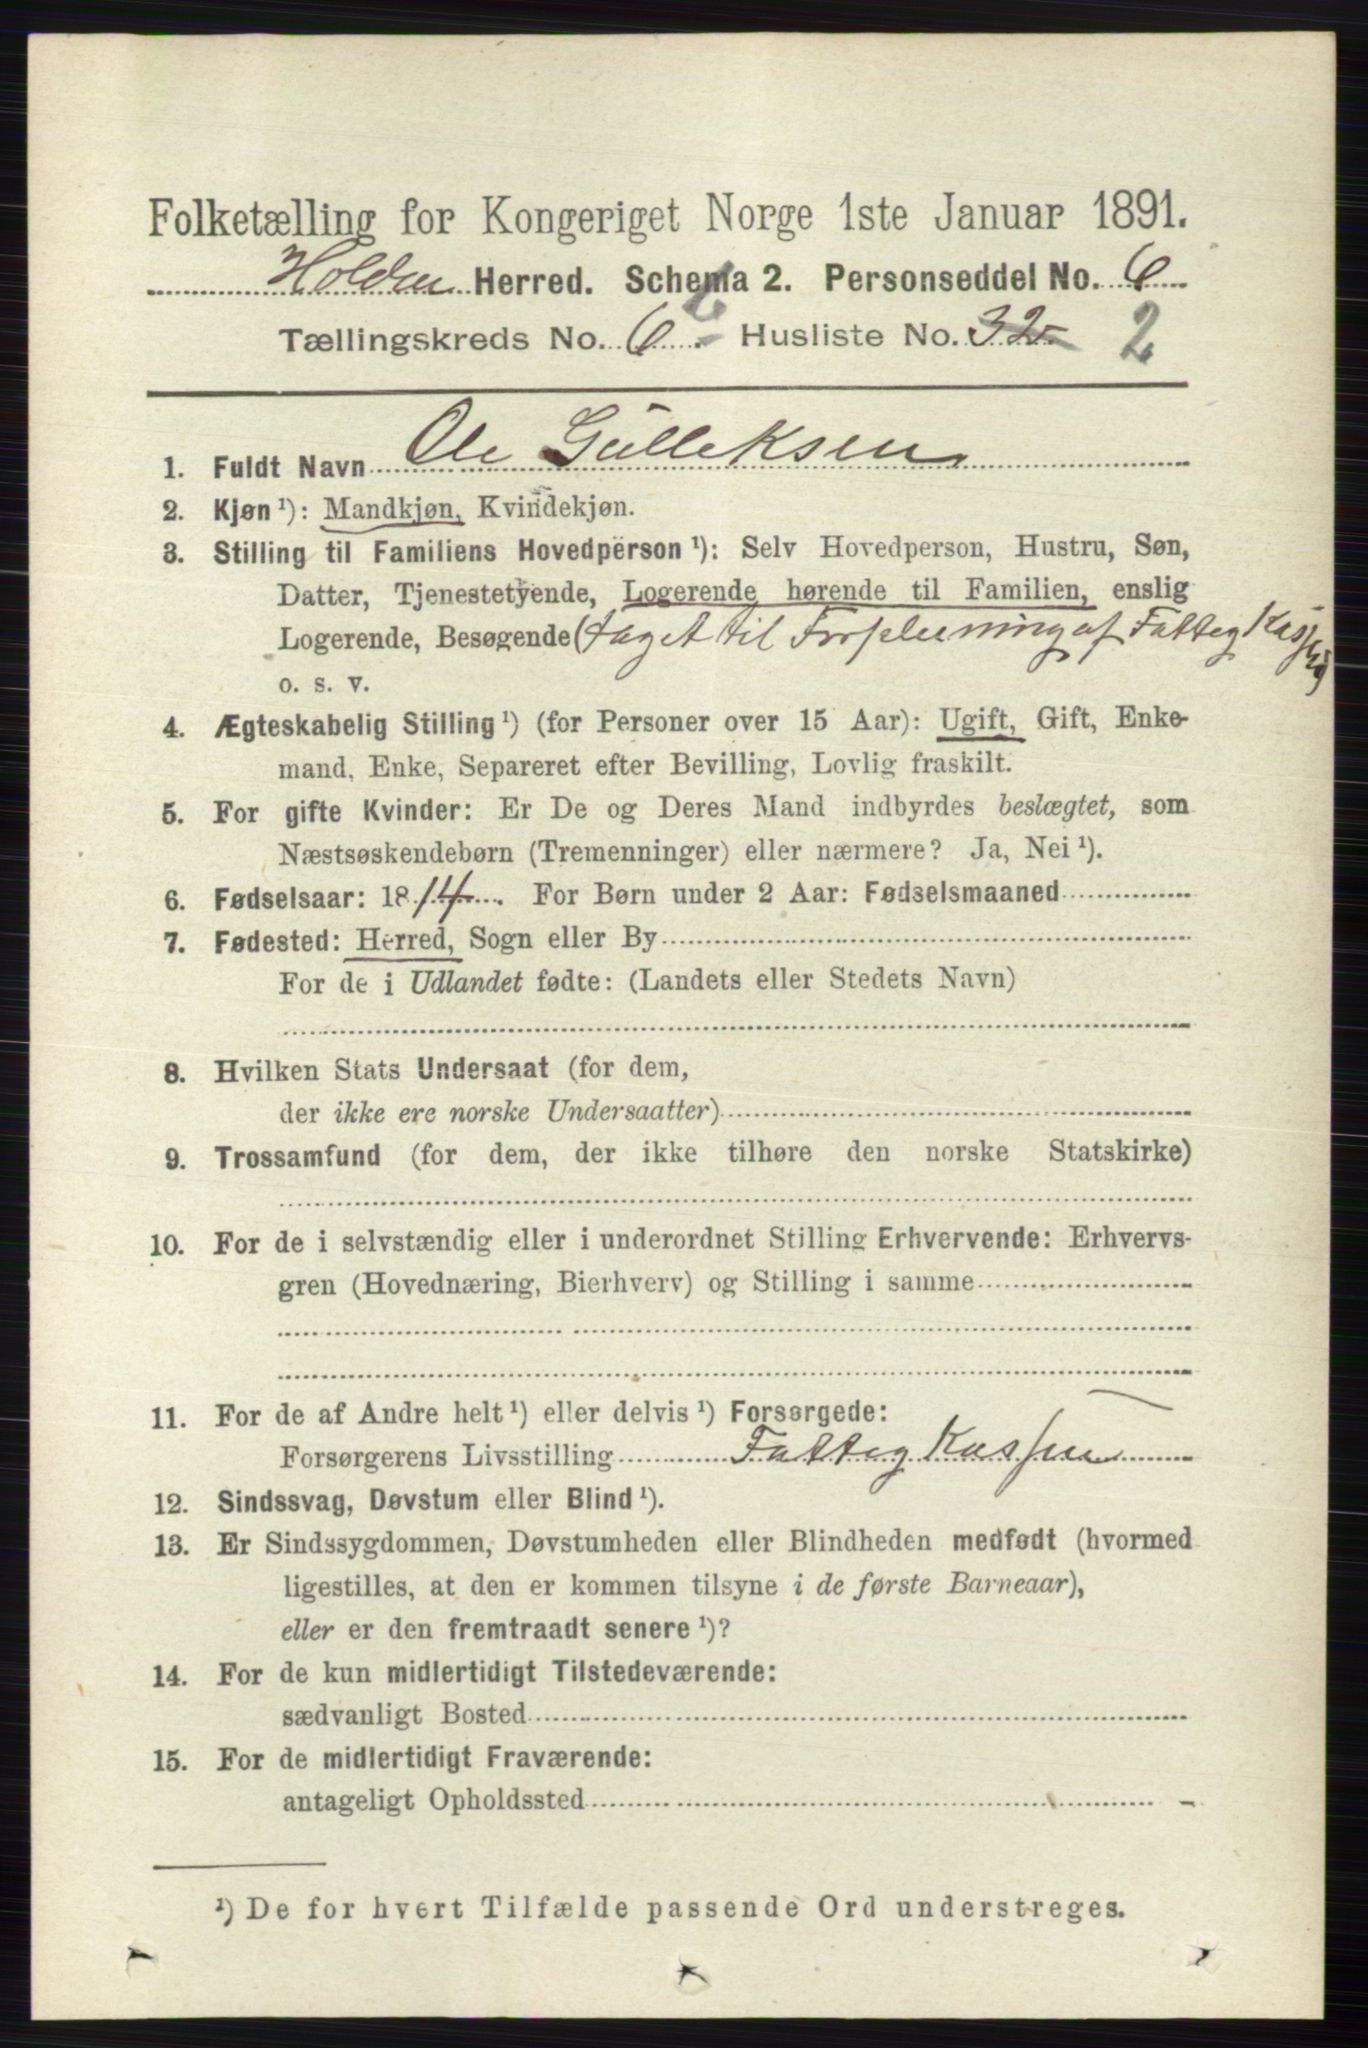 Folketælling for Kongeriget Norge 1ste Januar 1891.
Holden Herred. Schema 2. Personseddel No. 6
Tællingskreds No. 6 Husliste No. 32 2
1. Fuldt Navn Ole Gulleksen
2. Kjøn ¹): Mandkjøn, Kvindekjøn.
3. Stilling til Familiens Hovedperson ¹): Selv Hovedperson, Hustru, Søn,
Datter, Tjenestetyende, Logerende hørende til Familien, enslig
Logerende, Besøgende (taget til Forpleining af Fatteg Kassen)
o. s. v.
4. Ægteskabelig Stilling ¹) (for Personer over 15 Aar): Ugift, Gift, Enke-
mand, Enke, Separeret efter Bevilling, Lovlig fraskilt.
5. For gifte Kvinder: Er De og Deres Mand indbyrdes beslægtet, som
Næstsøskendebørn (Tremenninger) eller nærmere? Ja, Nei ¹).
6. Fødselsaar: 1814. For Børn under 2 Aar: Fødselsmaaned
7. Fødested: Herred, Sogn eller By
For de i Udlandet fødte: (Landets eller Stedets Navn)
8. Hvilken Stats Undersaat (for dem,
der ikke ere norske Undersaatter)
9. Trossamfund (for dem, der ikke tilhøre den norske Statskirke)
10. For de i selvstændig eller i underordnet Stilling Erhvervende: Erhvervs-
gren (Hovednæring, Bierhverv) og Stilling i samme
11. For de af Andre helt ¹) eller delvis ¹) Forsørgede:
Forsørgerens Livsstilling Fatteg Kassen
12. Sindssvag, Døvstum eller Blind ¹).
13. Er Sindssygdommen, Døvstumheden eller Blindheden medfødt (hvormed
ligestilles, at den er kommen tilsyne i de første Barneaar),
eller er den fremtraadt senere ¹)?
14. For de kun midlertidigt Tilstedeværende:
sædvanligt Bosted
15. For de midlertidigt Fraværende:
antageligt Opholdssted
¹) De for hvert Tilfælde passende Ord understreges.